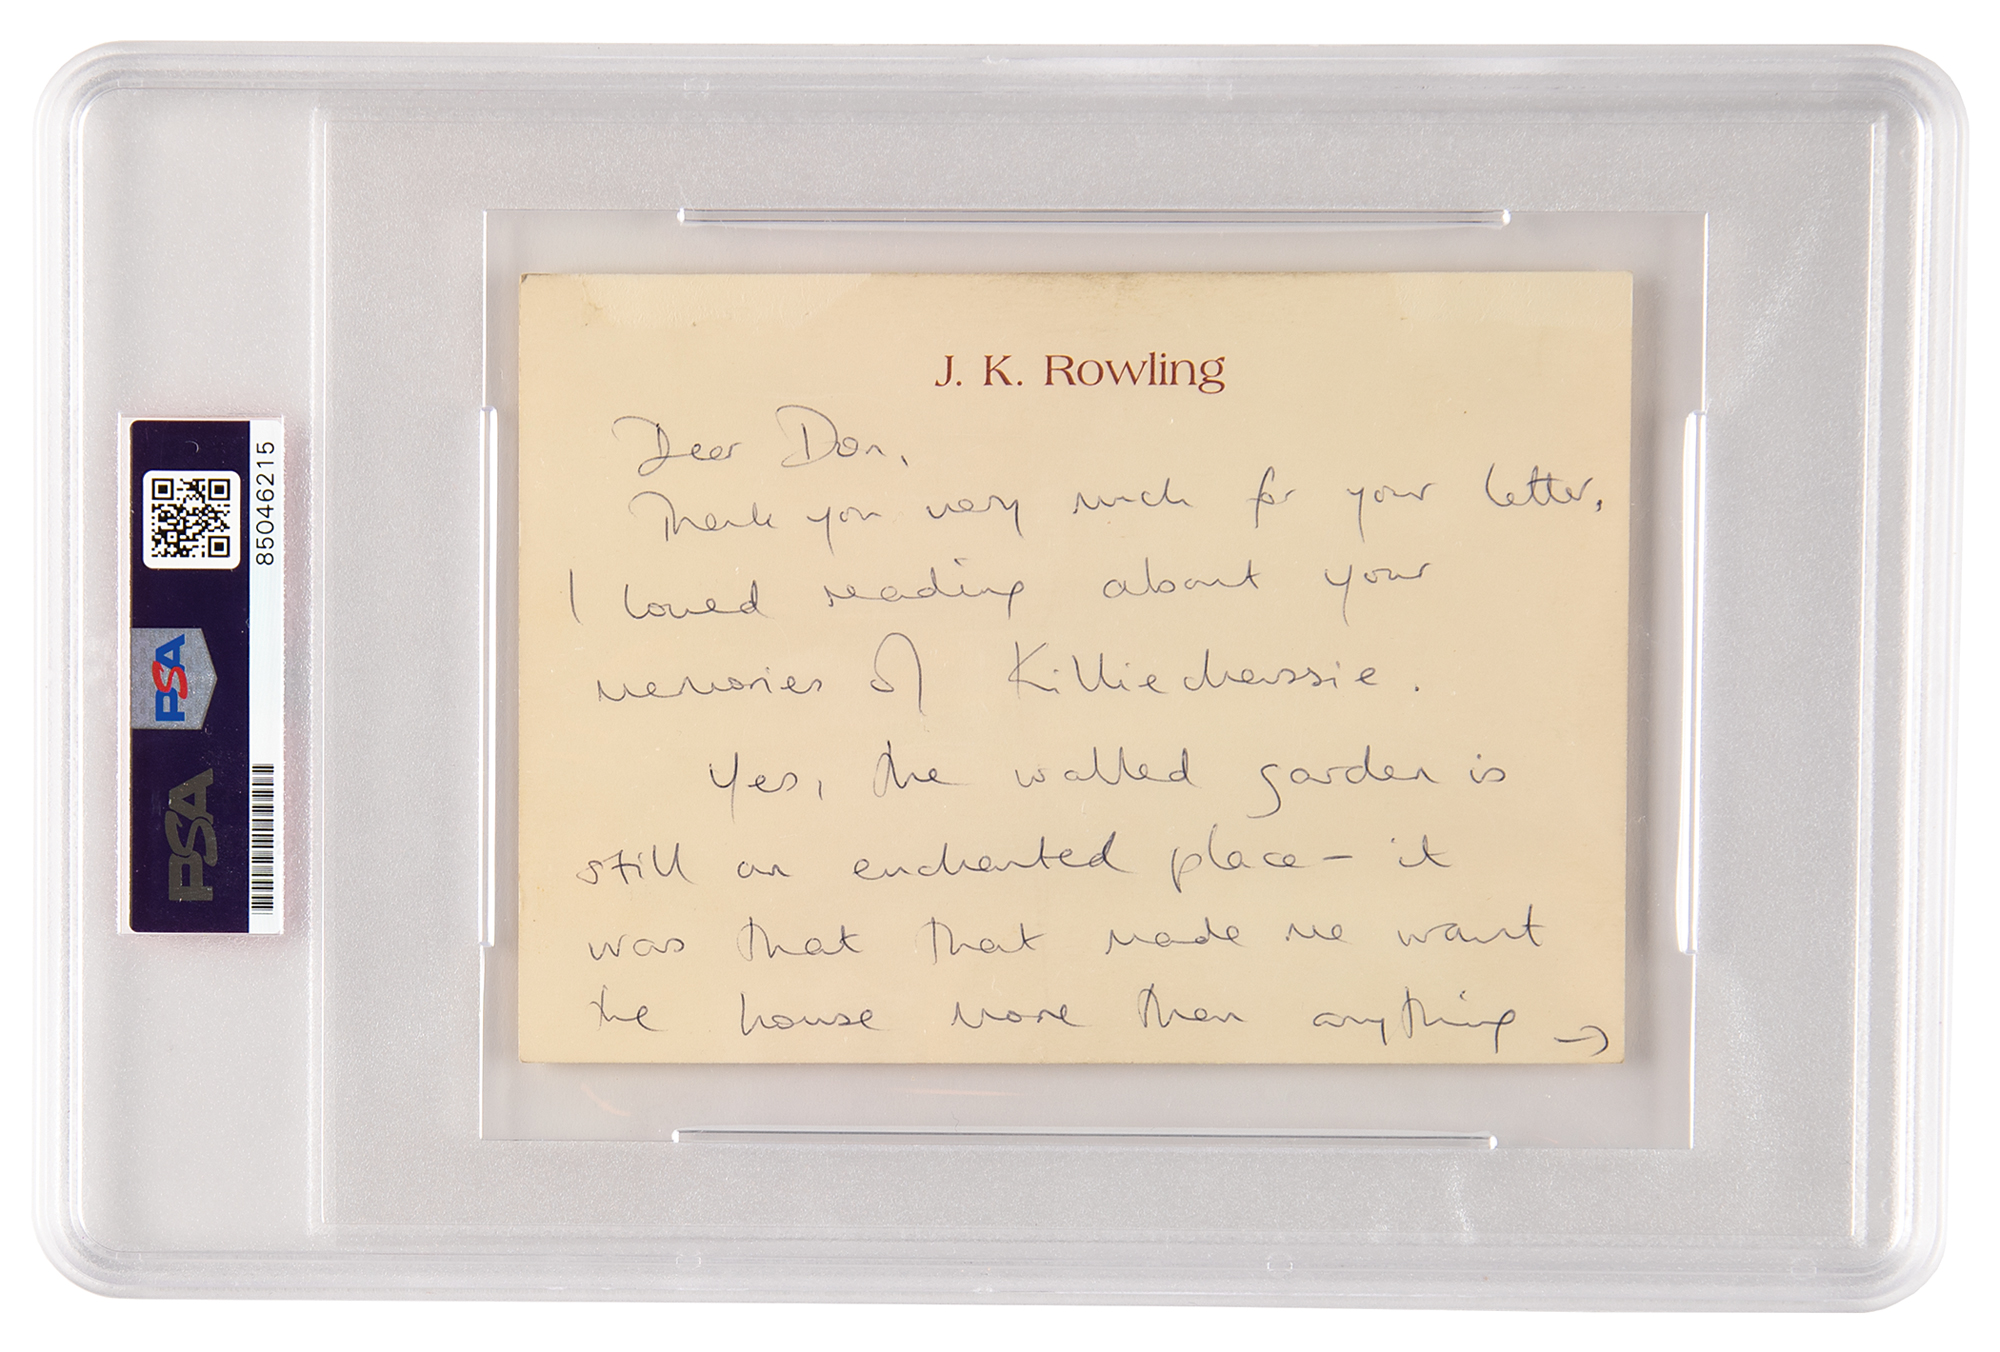 J. K. Rowling
Dear Don,
Thank you very much for your letter,
I loved reading about your
memories of Killiechassie.
Yes, the walled garden is
still an enchanted place – it
was that that made me want
the house more than anything →
85046215
PSA
PSA